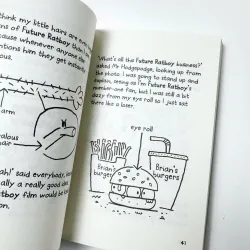 think my little hairs are
ns of Future Ratboy than
because whenever anyone
ntions him they get instantly
alous
air
ah!' said everybody,
ually a really good idea
atboy film would be
son.
'What's all the Future Ratboy business?'
asked Mr Hodgepodge, looking up from
the photo. I was going to stand up and
explain, seeing as I'm Future Ratboy's
number-one fan, but I was still a bit
dizzy from my eye roll so I just sat
there like a loser.
eye roll
Brian's
burgers
Brian's
burgers
41